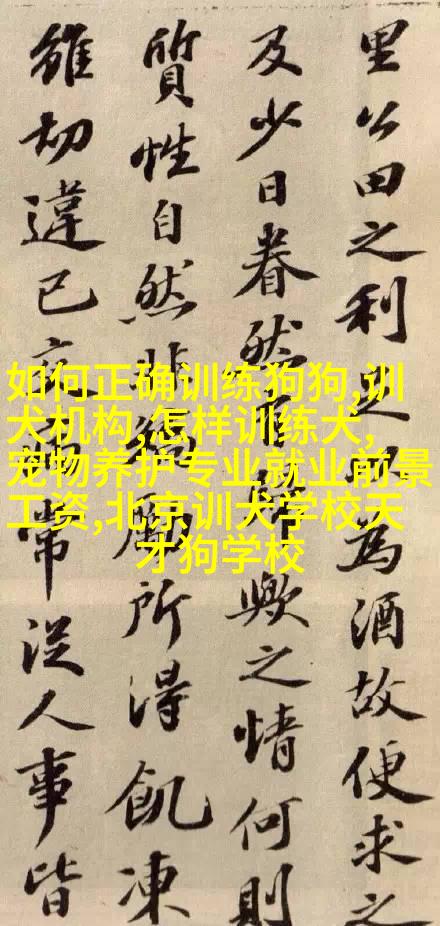 如何正确训练狗狗,训
犬机构,怎样训练犬,
宠物养护专业就业前景
工资,北京训犬学校天
才狗学校
里公田之利足為酒故便求之
及少日眷然歸歟之情何則
質性自然非矯勵所得飢凍
雖切違已交常從人事皆